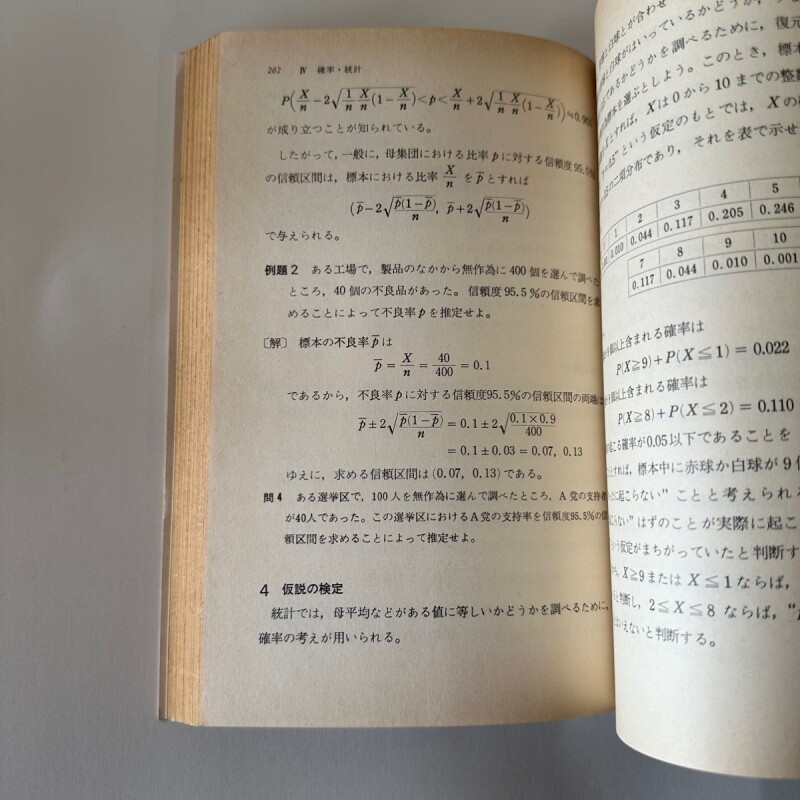 202 Ⅳ 確率・統計
P(X/n − 2√(1/n X/n(1−X/n)) < p < X/n + 2√(1/n X/n(1−X/n))) ≒
が成り立つことが知られている。
したがって,一般に,母集団における比率 p に対する信頼度 95.5%
の信頼区間は,標本における比率 X/n を p̄ とすれば
(p̄−2√(p̄(1−p̄)/n), p̄+2√(p̄(1−p̄)/n))
で与えられる。
例題2 ある工場で,製品のなかから無作為に 400 個を選んで調べた
ところ,40 個の不良品があった。信頼度 95.5 %の信頼区間を求
めることによって不良率 p を推定せよ。
〔解〕 標本の不良率 p̄ は
p̄ = X/n = 40/400 = 0.1
であるから,不良率 p に対する信頼度95.5%の信頼区間の両端は
p̄±2√(p̄(1−p̄)/n) = 0.1±2√(0.1×0.9/400)
= 0.1±0.03 = 0.07, 0.13
ゆえに,求める信頼区間は (0.07, 0.13) である。
問4 ある選挙区で,100 人を無作為に選んで調べたところ,A 党の支持者
が40人であった。この選挙区におけるA党の支持率を信頼度95.5%の信
頼区間を求めることによって推定せよ。
4 仮説の検定
統計では,母平均などがある値に等しいかどうかを調べるために,
確率の考えが用いられる。
白球とが合わせ
白球がはいっているかどうか,
であるかどうかを調べるために,復元
の標本を選ぶとしよう。このとき,標本
X とすれば,X は 0 から 10 までの整数
という仮定のもとでは,X の
の二項分布であり,それを表で示せ
1 2 3 4 5
0.010 0.044 0.117 0.205 0.246
7 8 9 10
0.117 0.044 0.010 0.001
個以上含まれる確率は
P(X≧9)+P(X≦1) = 0.022
個以上含まれる確率は
P(X≧8)+P(X≦2) = 0.110
起こる確率が0.05以下であることを
とすれば,標本中に赤球か白球が 9 個
に起こらない” ことと考えられる
らない” はずのことが実際に起こ
いう仮定がまちがっていたと判断す
X≧9 または X≦1 ならば,
と判断し,2≦X≦8 ならば,“
はいえないと判断する。